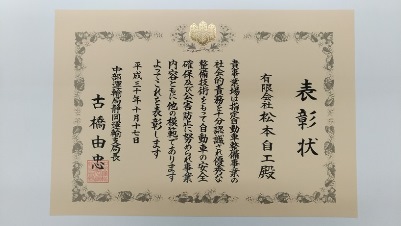 表彰状
有限会社松本自工殿
貴事業場は指定自動車整備事業の
社会的責務を十分認識され優秀な
整備技術をもって自動車の安全
確保及び公害防止に努められ事業
内容ともに他の模範であります
よってこれを表彰します
平成三十年十月十七日
中部運輸局静岡運輸支局長
古橋由忠